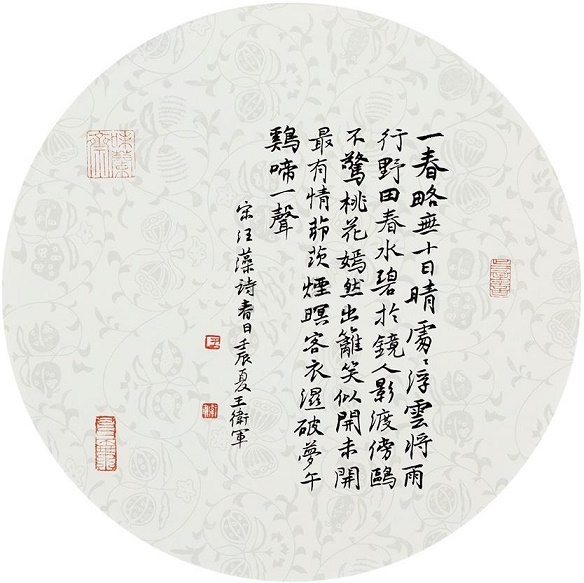 一春略無十日晴處〻浮雲將雨
行野田春水碧扵鏡人影渡傍鷗
不驚桃花嫣然出籬笑似開未開
最有情茆茨煙暝客衣濕破夢午
鷄啼一聲
宋汪藻詩春日壬辰夏王衛軍